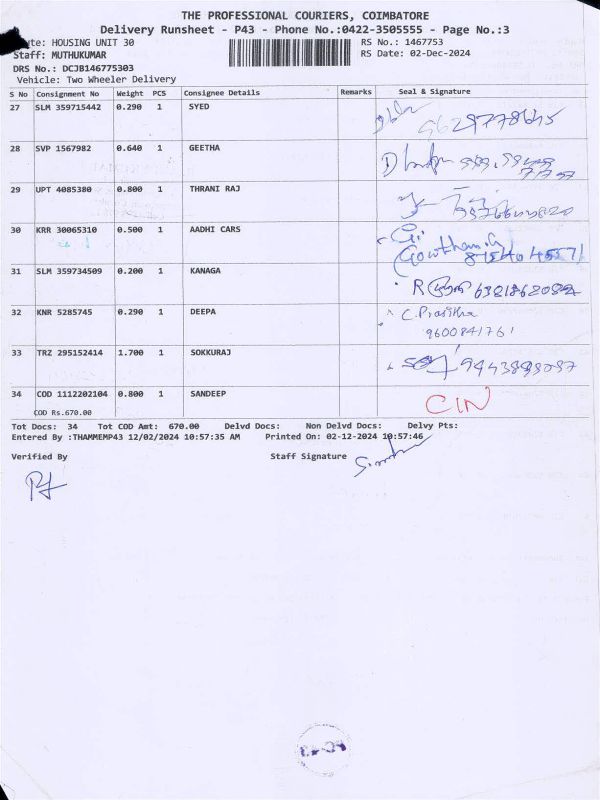 THE PROFESSIONAL COURIERS, COIMBATORE
Delivery Runsheet - P43 - Phone No.:0422-3505555 - Page No.:3
ute: HOUSING UNIT 30 RS No.: 1467753
Staff: MUTHUKUMAR RS Date: 02-Dec-2024
DRS No.: DCJB146775303
Vehicle: Two Wheeler Delivery
S No Consignment No Weight PCS Consignee Details Remarks Seal & Signature
27 SLM 359715442 0.290 1 SYED
28 SVP 1567982 0.640 1 GEETHA
29 UPT 4085380 0.800 1 THRANI RAJ
30 KRR 30065310 0.500 1 AADHI CARS
Gowtham.G
31 SLM 359734509 0.200 1 KANAGA
32 KNR 5285745 0.290 1 DEEPA C. Prasitha
9600841761
33 TRZ 295152414 1.700 1 SOKKURAJ
34 COD 1112202104 0.800 1 SANDEEP CIN
COD Rs.670.00
Tot Docs: 34 Tot COD Amt: 670.00 Delvd Docs: Non Delvd Docs: Delvy Pts:
Entered By :THAMMEMP43 12/02/2024 10:57:35 AM Printed On: 02-12-2024 10:57:46
Verified By Staff Signature